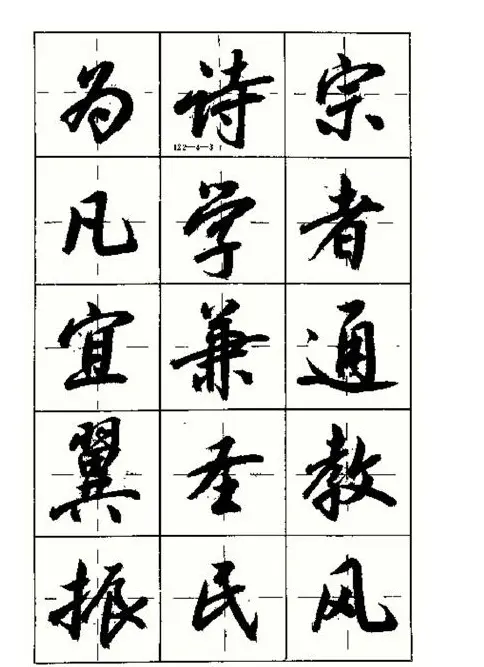 为诗宗
122—4—3
凡学者
宜兼通
翼圣教
振民风